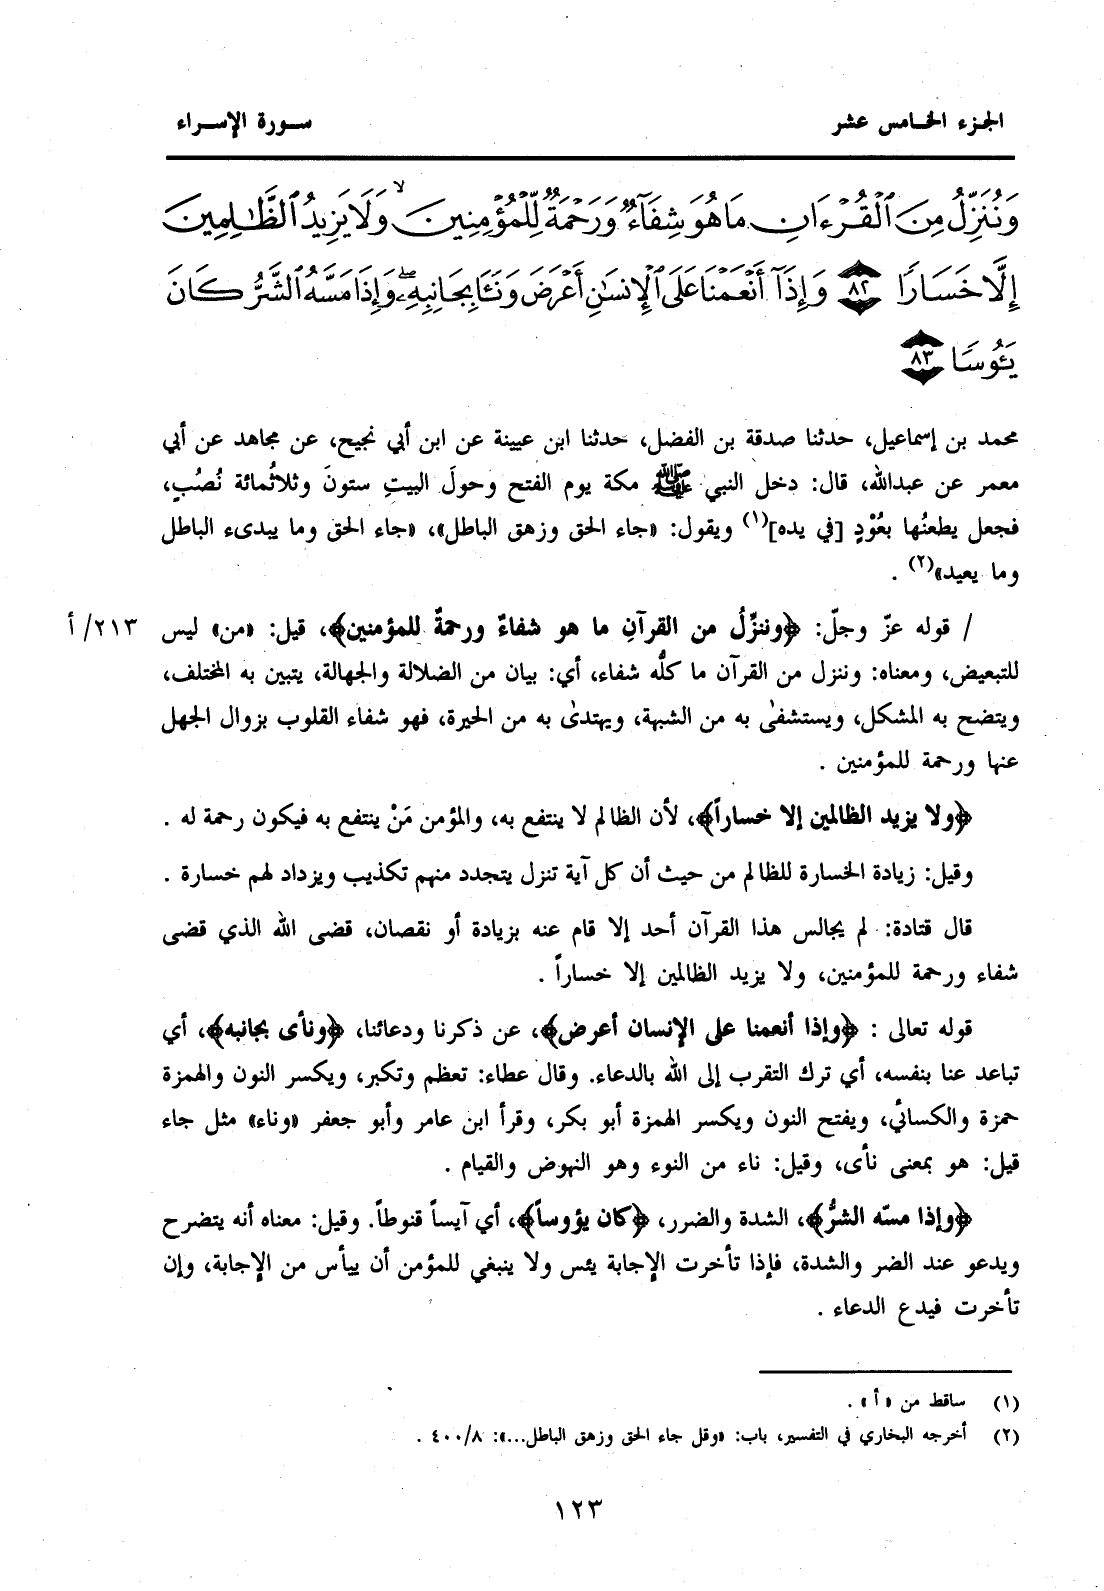 الجزء الخامس عشر
سورة الإسراء
وَنُنَزِّلُ مِنَ ٱلْقُرْءَانِ مَا هُوَ شِفَآءٌ وَرَحْمَةٌ لِّلْمُؤْمِنِينَ ۙ وَلَا يَزِيدُ ٱلظَّٰلِمِينَ
إِلَّا خَسَارًا ۝٨٢ وَإِذَآ أَنْعَمْنَا عَلَى ٱلْإِنسَٰنِ أَعْرَضَ وَنَـَٔا بِجَانِبِهِۦ ۖ وَإِذَا مَسَّهُ ٱلشَّرُّ كَانَ
يَـُٔوسًا ۝٨٣
محمد بن إسماعيل، حدثنا صدقة بن الفضل، حدثنا ابن عيينة عن ابن أبي نجيح، عن مجاهد عن أبي
معمر عن عبدالله، قال: دخل النبي ﷺ مكة يوم الفتح وحولَ البيتِ ستونَ وثلاثُمائة نُصُبٍ،
فجعل يطعنُها بعُوْدٍ [في يده](١) ويقول: «جاء الحق وزهق الباطل»، «جاء الحق وما يبدىء الباطل
وما يعيد»(٢) .
/ قوله عزّ وجلّ: ﴿وننزِّلُ من القرآنِ ما هو شفاءٌ ورحمةٌ للمؤمنين﴾، قيل: «من» ليس ٢١٣/ أ
للتبعيض، ومعناه: وننزل من القرآن ما كلُّه شفاء، أي: بيان من الضلالة والجهالة، يتبين به المختلف،
ويتضح به المشكل، ويستشفىٰ به من الشبهة، ويهتدىٰ به من الحيرة، فهو شفاء القلوب بزوال الجهل
عنها ورحمة للمؤمنين .
﴿ولا يزيد الظالمين إلا خساراً﴾، لأن الظالم لا ينتفع به، والمؤمن مَنْ ينتفع به فيكون رحمة له .
وقيل: زيادة الخسارة للظالم من حيث أن كل آية تنزل يتجدد منهم تكذيب ويزداد لهم خسارة .
قال قتادة: لم يجالس هذا القرآن أحد إلا قام عنه بزيادة أو نقصان، قضى الله الذي قضى
شفاء ورحمة للمؤمنين، ولا يزيد الظالمين إلا خساراً .
قوله تعالى : ﴿وإذا أنعمنا على الإنسان أعرض﴾، عن ذكرنا ودعائنا، ﴿ونأى بجانبه﴾، أي
تباعد عنا بنفسه، أي ترك التقرب إلى الله بالدعاء. وقال عطاء: تعظم وتكبر، ويكسر النون والهمزة
حمزة والكسائي، ويفتح النون ويكسر الهمزة أبو بكر، وقرأ ابن عامر وأبو جعفر «وناء» مثل جاء
قيل: هو بمعنى نأى، وقيل: ناء من النوء وهو النهوض والقيام .
﴿وإذا مسّه الشرُّ﴾، الشدة والضرر، ﴿كان يؤوساً﴾، أي آيساً قنوطاً. وقيل: معناه أنه يتضرح
ويدعو عند الضر والشدة، فإذا تأخرت الإجابة يئس ولا ينبغي للمؤمن أن ييأس من الإجابة، وإن
تأخرت فيدع الدعاء .
(١) ساقط من «أ» .
(٢) أخرجه البخاري في التفسير، باب: «وقل جاء الحق وزهق الباطل...»: ٤٠٠/٨ .
١٢٣